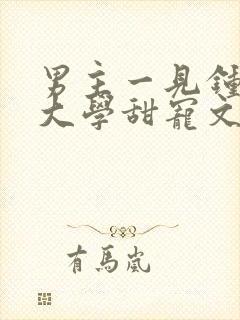 男主一見鍾
大學甜寵文
有馬嵐